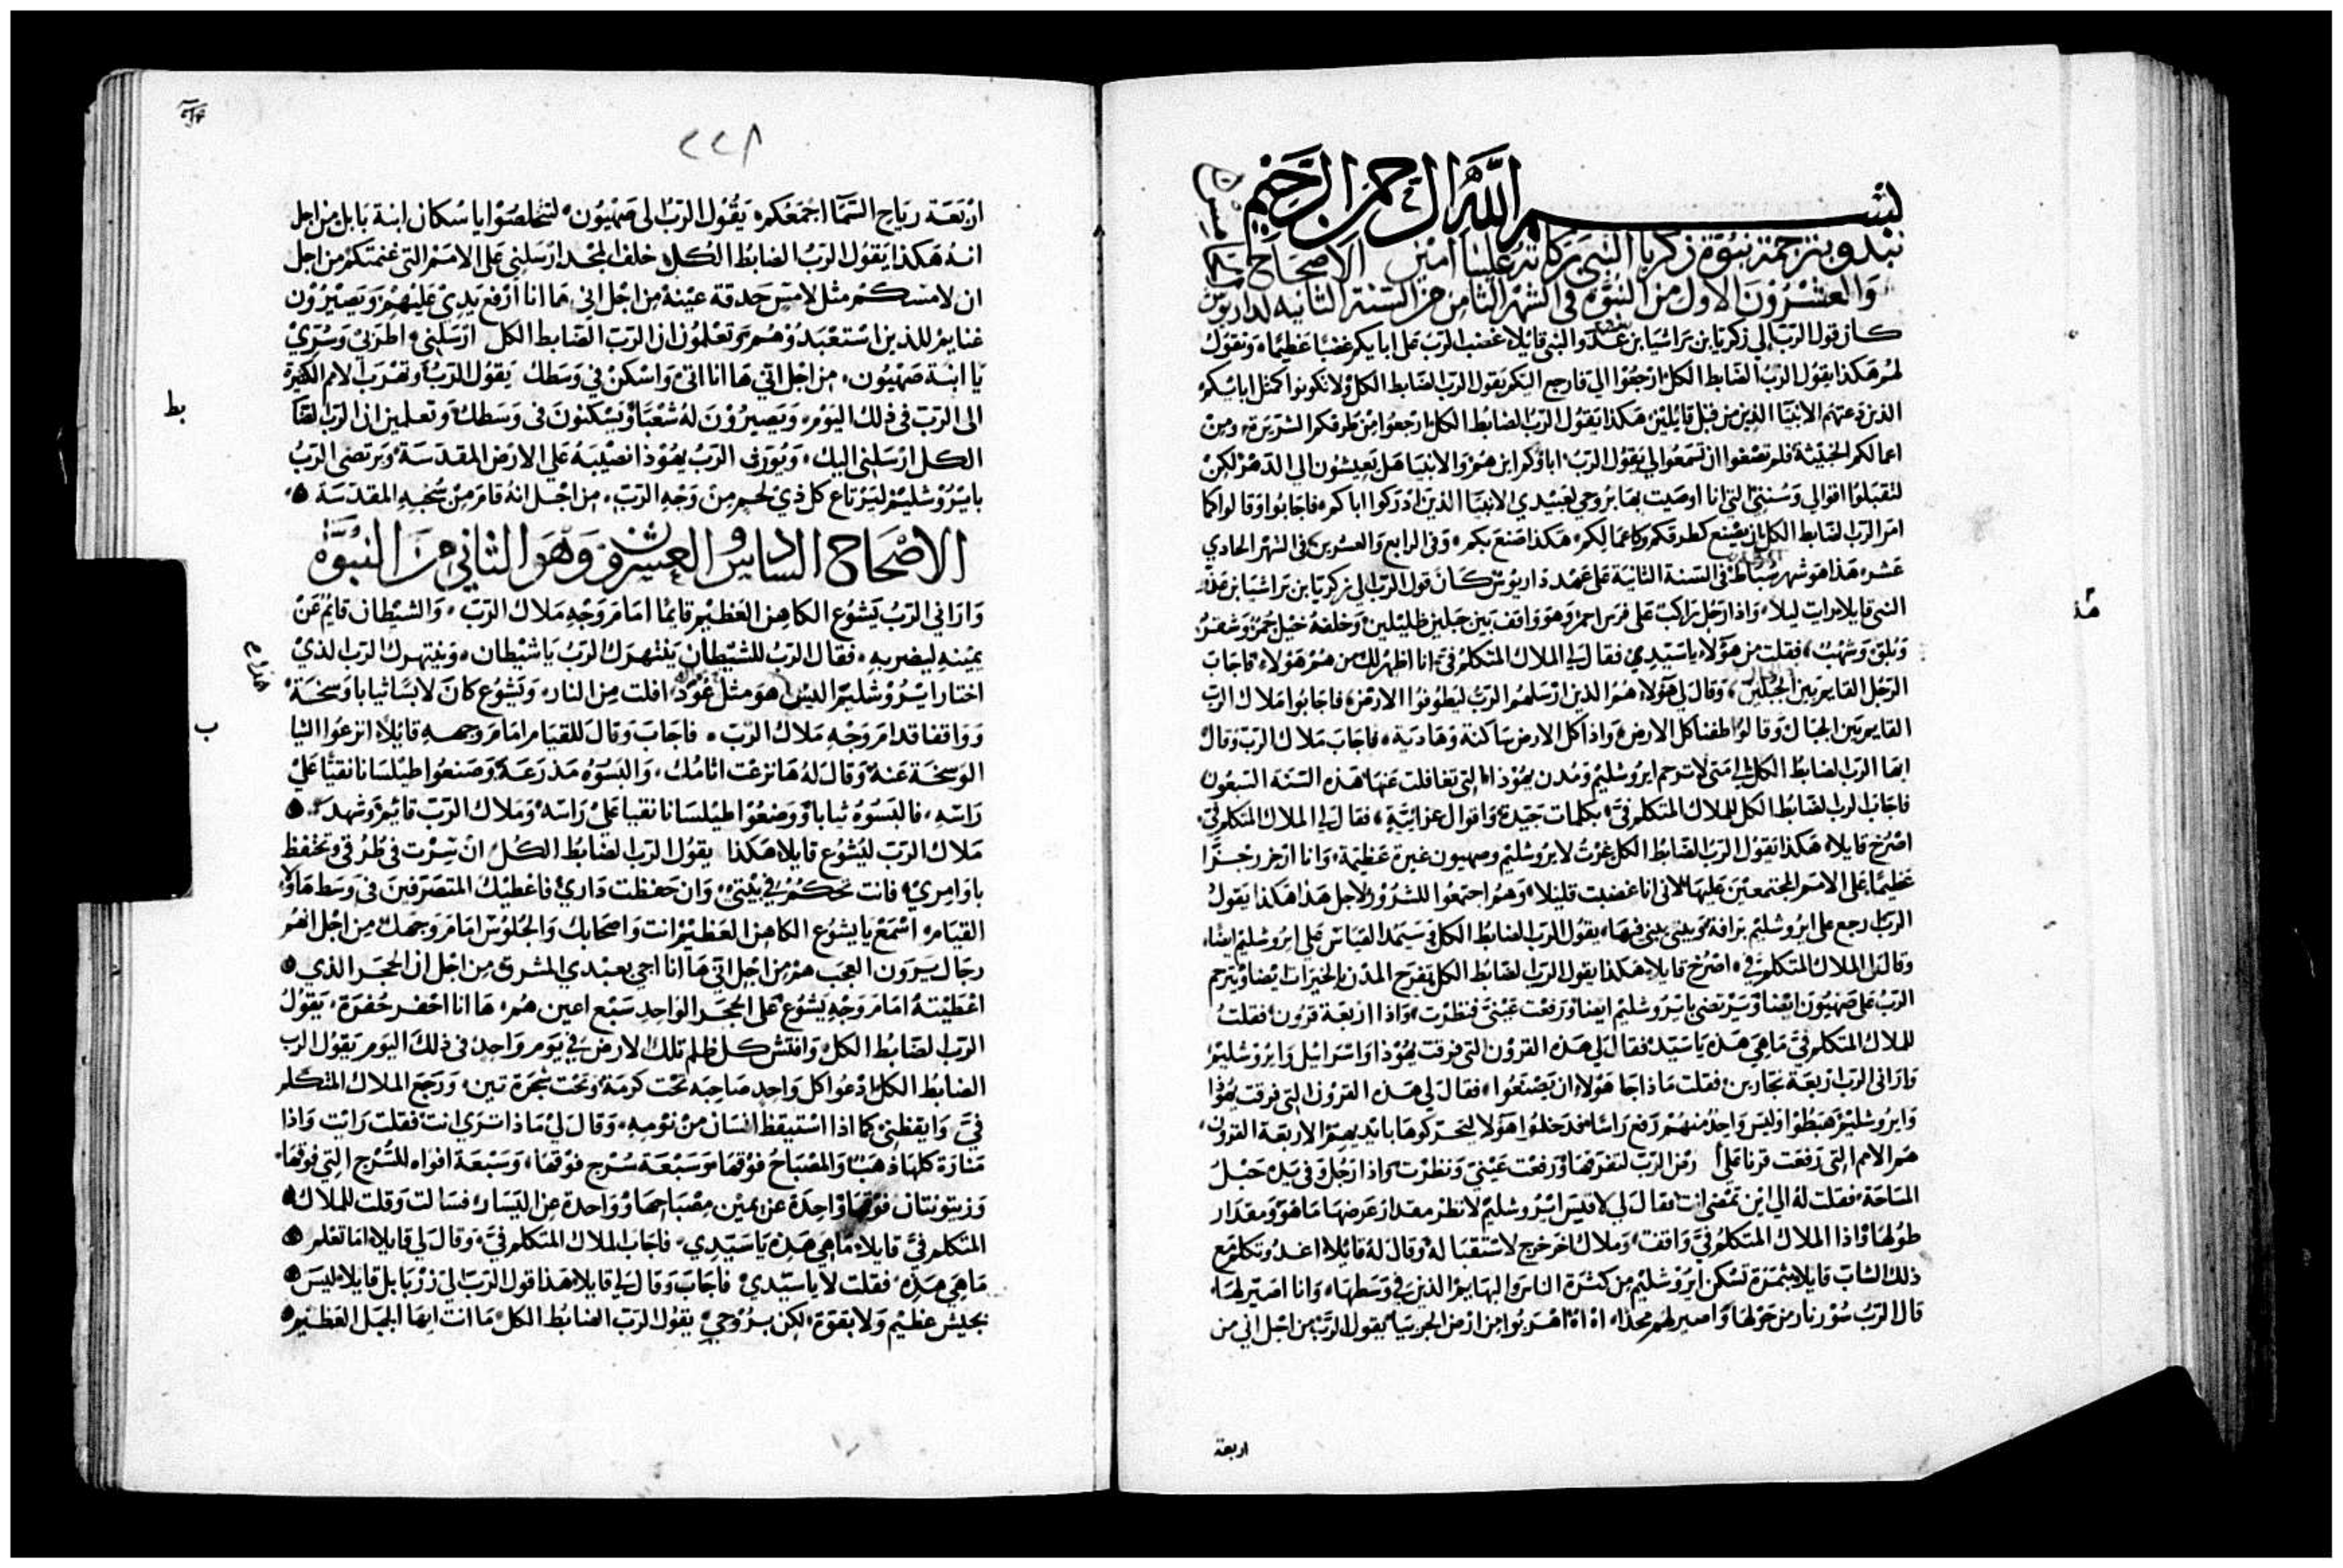 بسم الله الرحمن الرحيم
نبدو بترجمة نبوة زكريا النبي بركاته علينا امين الاصحاح
والعشرون الاول من النبوه في الشهر الثامن من السنة الثانيه لداريوس
كان قول الرب الي زكريا بن براشيا بن عدو النبي قايلا غضب الرب على ابايكم غضبا عظيما وتقول
لهم هكذا يقول الرب الضابط الكل ارجعوا الي فارجع اليكم يقول الرب الضابط الكل ولا تكونوا كمثل ابايكم
الذين دعتهم الانبيا الذين من قبل قايلين هكذا يقول الرب الضابط الكل ارجعوا من طرقكم الشريرة ومن
اعمالكم الخبيثة فلم تصغوا ان تسمعوا لي يقول الرب اباوكم اين هم والانبيا هل يعيشون الي الدهر لكن
لتقبلوا اقوالي وسنني التي انا اوصيت بها بروحي لعبيدي الانبيا الذين ادركوا اباكم فاجابوا وقالوا كما
امر الرب الضابط الكل بان يصنع كطرقكم وكاعمالكم هكذا صنع بكم وفي الرابع والعشرين في الشهر الحادي
عشر هذا هو شهر سباط في السنة الثانية على عهد داريوس كان قول الرب الي زكريا بن براشيا بن عدو
النبي قايلا رايت ليلا واذا رجل راكب على فرس احمر وهو واقف بين جبلين ظليلين وخلفه خيل حمر وشقر
وبلق وشهب فقلت من هولا ياسيدي فقال لي الملاك المتكلم في انا اظهر لك من هم هولاء فاجاب
الرجل القايم بين الجبلين وقال لي هولاء هم الذين ارسلهم الرب ليطوفوا الارض فاجابوا ملاك الرب
القايم بين الجبال وقالوا طفنا كل الارض واذا كل الارض ساكنة وهادية فاجاب ملاك الرب وقال
ايها الرب الضابط الكل الي متى لا ترحم ايروشليم ومدن يهوذا التي تغافلت عنها هذه السنة السبعون
فاجاب الرب الضابط الكل للملاك المتكلم في بكلمات جيدة واقوال عزائية فقال لي الملاك المتكلم في
اصرخ قايلا هكذا يقول الرب الضابط الكل غرت لايروشليم وصهيون غيرة عظيمة وانا ازجر رجزا
عظيما على الامم المجتمعين عليها لاني انا غضبت قليلا وهم اجتمعوا للشرور لاجل هذا هكذا يقول
الرب ارجع على ايروشليم برافة وبيتي يبنى فيها يقول الرب الضابط الكل وسيمد القياس على ايروشليم ايضا
وقال لي الملاك المتكلم في اصرخ قايلا هكذا يقول الرب الضابط الكل تفرح المدن بالخيرات ايضا ويترحم
الرب على صهيون ايضا وسيرتضي بايروشليم ايضا ورفعت عيني فنظرت واذا اربعة قرون فقلت
للملاك المتكلم في ما هي هذه ياسيد فقال لي هذه القرون التي فرقت يهوذا واسرائيل وايروشليم
وارانى الرب اربعة نجارين فقلت ماذا جا هولاء ان يصنعوا فقال لي هذه القرون التي فرقت يهوذا
وايروشليم هبطوا وليس واحد منهم رفع راسا فدخلوا هولا ليحركوها بايديهم الاربعة القرون
هم الامم التي رفعت قرنا على ارض الرب لتفرقها ورفعت عيني ونظرت واذا رجل وفي يده حبل
المساحة فقلت له الي اين تمضي انت فقال لي لاقيس ايروشليم لانظر مقدار عرضها ما هو ومقدار
طولها واذا الملاك المتكلم في واقف وملاك اخر خرج لاستقباله وقال له قائلا اغد وتكلم مع
ذلك الشاب قايلا بثمرة تسكن ايروشليم من كثرة الناس والبهايم الذين في وسطها وانا اصير لها
قال الرب سور نار من حولها واصير لهم مجدا اه اه اهربوا من ارض الجربيا يقول الرب من اجل اني من
اربعة
٢٢٨
اربعة رياح السما اجمعكم يقول الرب الى صهيون لتخلصوا يا سكان ابنة بابل من اجل
انه هكذا يقول الرب الضابط الكل خلف المجد ارسلني على الامم التي غنمتكم من اجل
ان لامسكم مثل لامس حدقة عينه من اجل اني ها انا ارفع يدي عليهم ويصيرون
غنايم للذين استعبدوهم وتعلمون ان الرب الضابط الكل ارسلني اطربي وسري
يا ابنة صهيون من اجل اني ها انا اتي واسكن في وسطك يقول الرب وتهرب الامم الكثيرة
الى الرب في ذلك اليوم ويصيرون له شعبا ويسكنون في وسطك وتعلمين ان الرب الضابط
الكل ارسلني اليك ويورث الرب يهوذا نصيبه على الارض المقدسة ويرتضي الرب
بايروشليم ليرتاع كل ذي لحم من وجه الرب من اجل انه قام من سحبه المقدسة
الاصحاح السادس والعشرون وهو الثاني من النبوة
واراني الرب يشوع الكاهن العظيم قايما امام وجه ملاك الرب والشيطان قايم عن
يمينه ليضر به فقال الرب للشيطان ينتهرك الرب ياشيطان وينتهرك الرب الذي
اختار ايروشليم اليس هو مثل عود افلت من النار ويشوع كان لابسا ثيابا وسخة
وواقفا قدام وجه ملاك الرب فاجاب وقال للقيام امام وجهه قايلا انزعوا الثيا
الوسخة عنه وقال له ها نزعت اثامك والبسوه مذرعة وصنعوا طيلسانا نقيا على
راسه فالبسوه ثيابا ووضعوا طيلسانا نقيا على راسه وملاك الرب قايم وشهد
ملاك الرب ليشوع قايلا هكذا يقول الرب الضابط الكل ان سرت في طرقي وتحفظ
باوامري فانت تحكم في بيتي وان حفظت داري فاعطيك المتصرفين في وسط هاولا
القيام اسمع يا يشوع الكاهن العظيم انت واصحابك والجلوس امام وجهك من اجل انهم
رجال يرون العجب هم من اجل اني ها انا اجي بعبدي المشرق من اجل ان الحجر الذي
اعطيته امام وجه يشوع على الحجر الواحد سبع اعين هم ها انا احفر حفرة يقول
الرب الضابط الكل وافتش كل ظلم تلك الارض في يوم واحد في ذلك اليوم يقول الرب
الضابط الكل ادعوا كل واحد صاحبه تحت كرمة وتحت شجرة تين ورجع الملاك المتكلم
في وايقظني كما اذا استيقظ انسان من نومه وقال لي ماذا ترى انت فقلت رايت واذا
منارة كلها ذهب والمصباح فوقها وسبعة سرج فوقها وسبعة افواه للسرج التي فوقها
وزيتونتان فوقها واحدة عن يمين مصباحها وواحدة عن اليسار فسالت وقلت للملاك
المتكلم في قايلا ما هي هذه يا سيدي فاجاب الملاك المتكلم في وقال لي قايلا اما تعلم
ما هي هذه فقلت لا ياسيدي فاجاب وقال لي قايلا هذا قول الرب الي زربابل قايلا ليس
بجيش عظيم ولا بقوة لكن بروحي يقول الرب الضابط الكل ما انت ايها الجبل العظيم
بط
ب